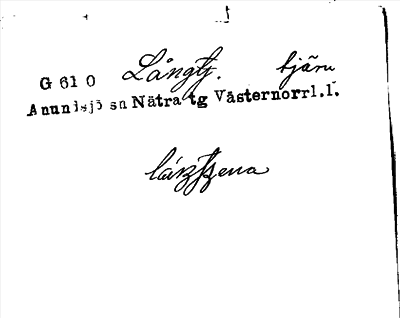 G 61 0 Långtj. tjärn
Anundsjö sn Nätra tg Västernorrl.l.